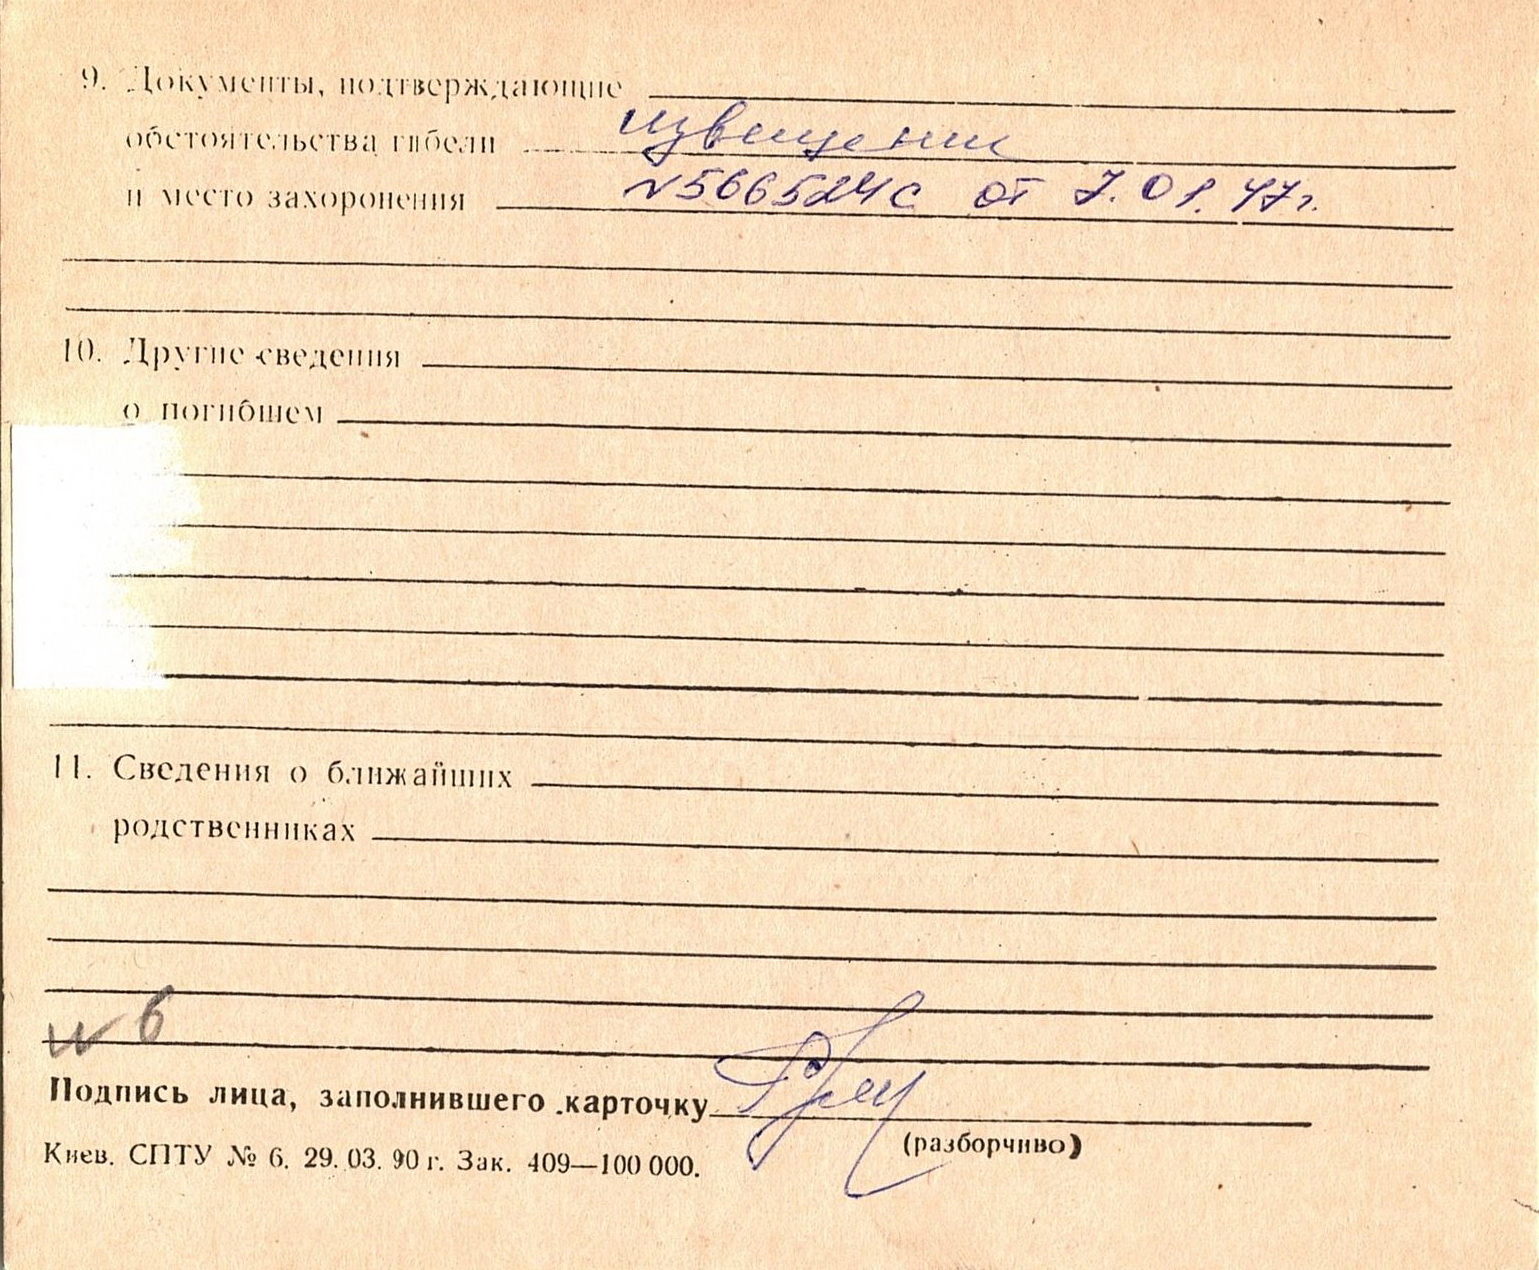 9. Документы, подтверждающие
извещение
обстоятельства гибели
и место захоронения №566524с от 7.01.47г.
10. Другие сведения
о погибшем
11. Сведения о ближайших
родственниках
№ 6
Подпись лица, заполнившего карточку
(разборчиво)
Киев. СПТУ № 6. 29. 03. 90 г. Зак. 409—100 000.